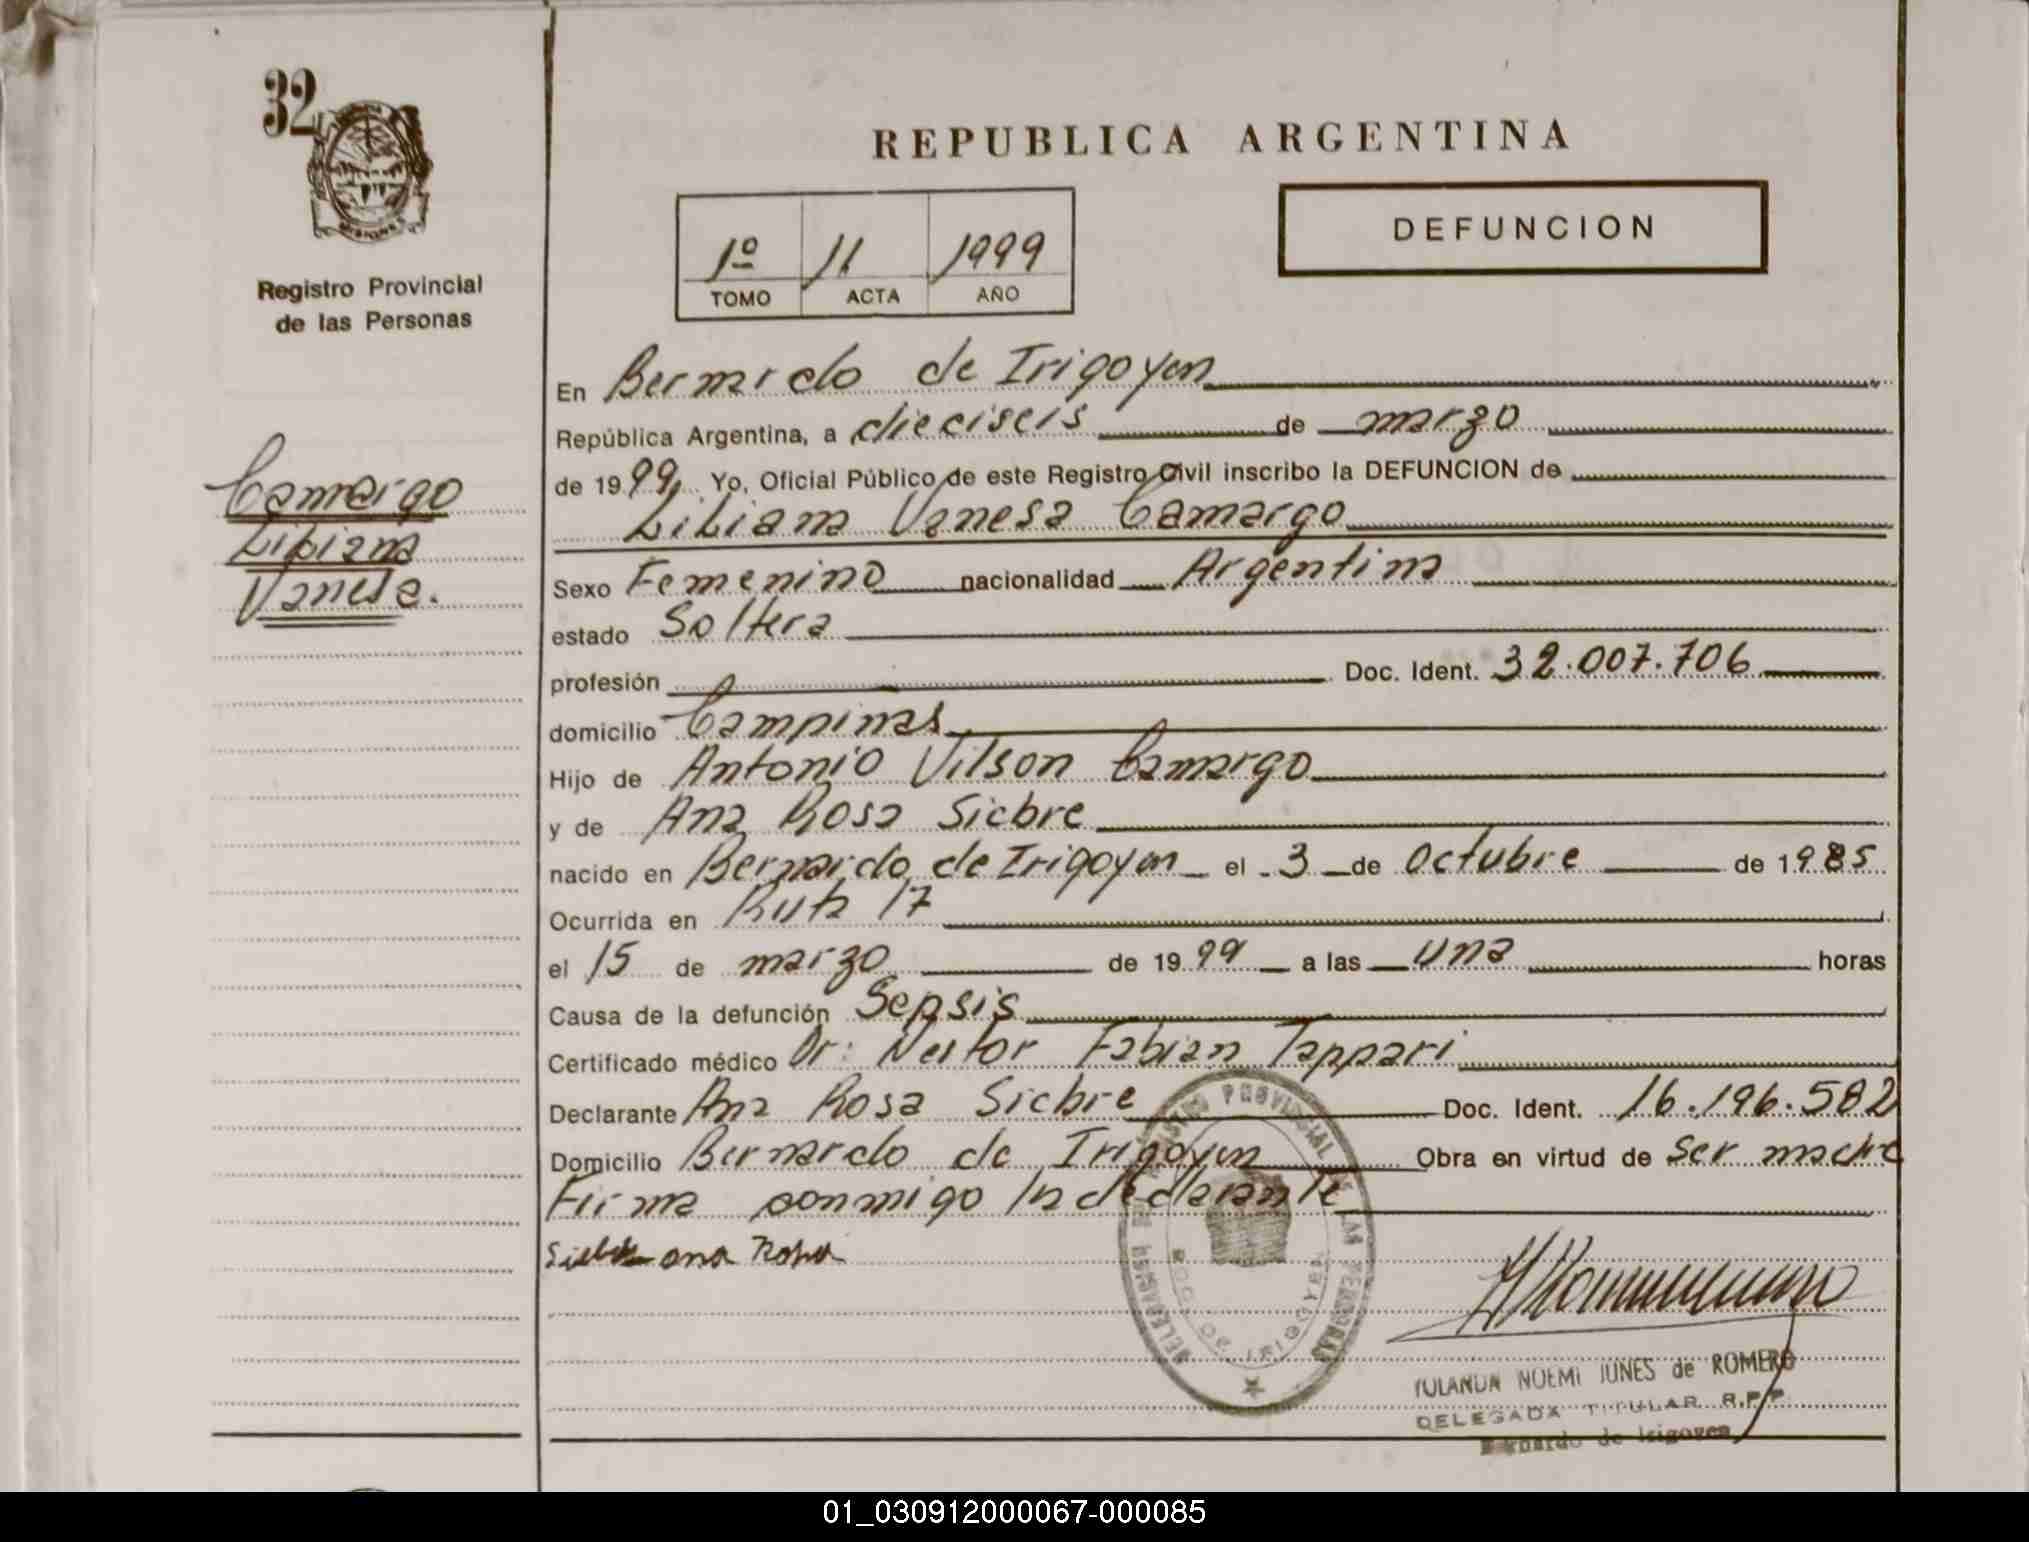 32
MISIONES
Registro Provincial
de las Personas
Camargo
Liliana
Vanesa.
REPUBLICA ARGENTINA
1º 11 1999
TOMO ACTA AÑO
DEFUNCION
En Bernardo de Irigoyen
República Argentina, a dieciseis de marzo
de 1999. Yo, Oficial Público de este Registro Civil inscribo la DEFUNCION de
Liliana Vanesa Camargo
Sexo Femenino nacionalidad Argentina
estado Soltera
profesión Doc. Ident. 32.007.706
domicilio Campinas
Hijo de Antonio Vilson Camargo
y de Ana Rosa Siebre
nacido en Bernardo de Irigoyen el 3 de Octubre de 1985
Ocurrida en Ruta 17
el 15 de marzo de 1999 a las una horas
Causa de la defunción Sepsis
Certificado médico Dr: Nestor Fabian Tappari
Declarante Ana Rosa Siebre Doc. Ident. 16.196.582
Domicilio Bernardo de Irigoyen Obra en virtud de ser madre
Firma conmigo la declarante
ana Rosa
REGISTRO PROVINCIAL DE LAS PERSONAS
BDO. DE IRIGOYEN
YOLANDA NOEMI JUNES de ROMERO
DELEGADA TITULAR R.P.P.
Bernardo de Irigoyen
01_030912000067-000085